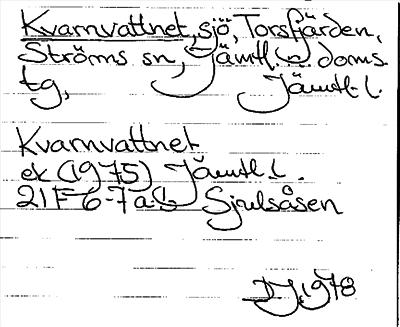 Kvarnvattnet, sjö, Torsfjärden,
Ströms sn, Jämtl. v. doms.
tg, Jämtl. l.
Kvarnvattnet
ek (1975) Jämtl. l.
21F 6-7 a-b Sjulsåsen
DJ, 1978